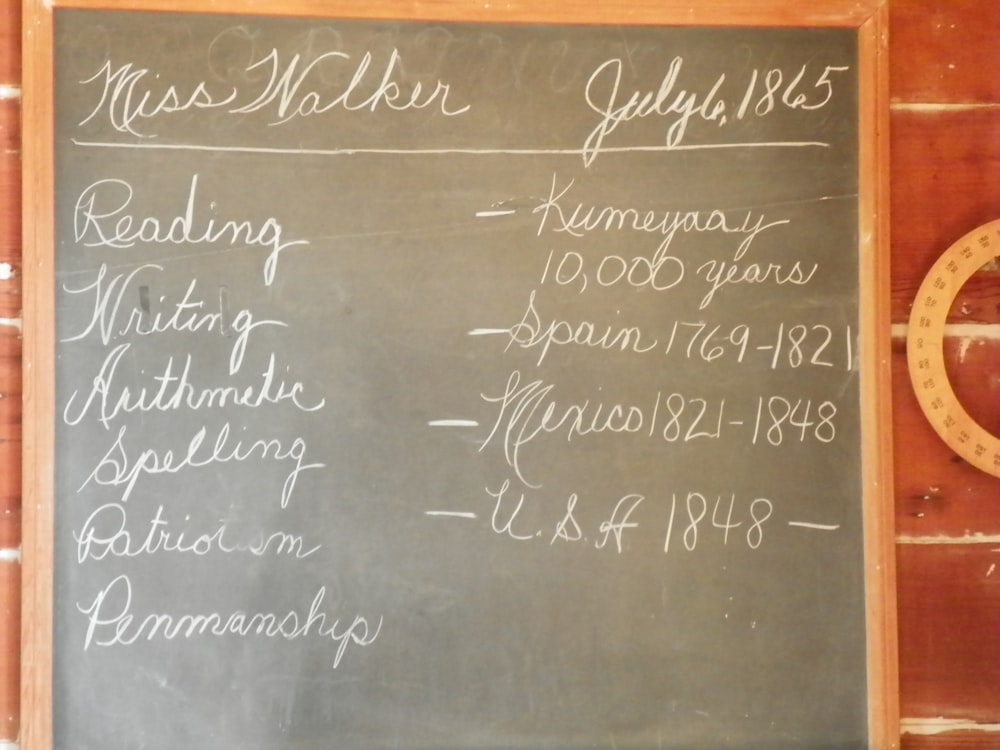 Miss Walker July 6, 1865
Reading - Kumeyaay
10,000 years
Writing - Spain 1769-1821
Arithmetic - Mexico 1821-1848
Spelling
Patriotism - U.S.A 1848 -
Penmanship